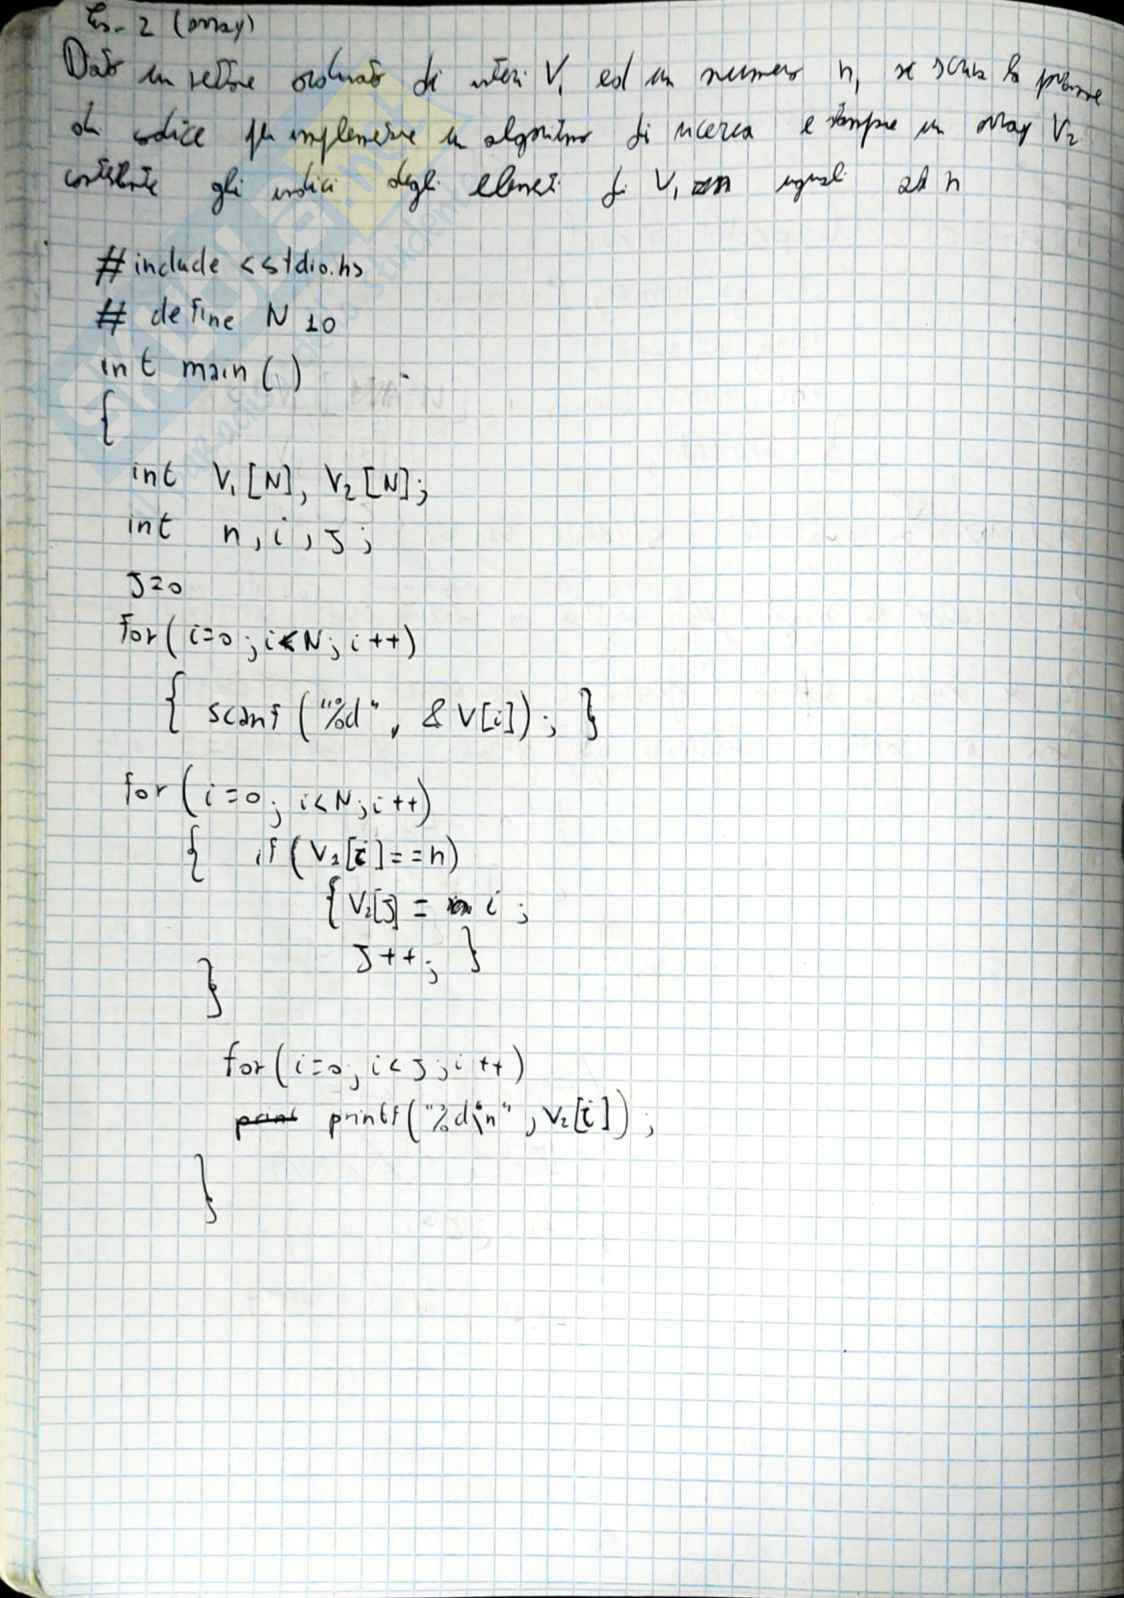 Es. 2 (array)
Dato un vettore ordinato di interi V1 ed un numero n, si scriva la porzione
di codice per implementare un algoritmo di ricerca e stampare un array V2
contenente gli indici degli elementi di V1 uguali ad n
#include <stdio.h>
# define N 10
int main()
{
int V1[N], V2[N];
int n, i, j;
j=0
for(i=0; i<N; i++)
{ scanf ("%d", &V[i]); }
for(i=0; i<N; i++)
{ if(V1[i]==n)
{V2[j] = i;
j++; }
}
for(i=0; i<j; i++)
printf("%d\n", V2[i]);
}